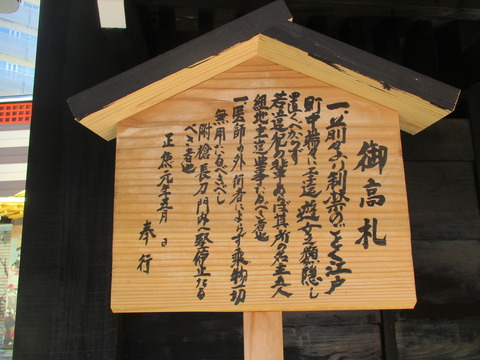 御高札
一前々より制禁のごとく江戸
町中端々に至迄遊女之類隠し
置くべからず
若違犯の輩あらば其所の名主五人
組地主迄曲事たるべき者也
一医師の外何者によらず乗物一切
無用たるべし
附槍長刀門内へ堅停止たる
べき者也
正徳元年五月 日
奉行